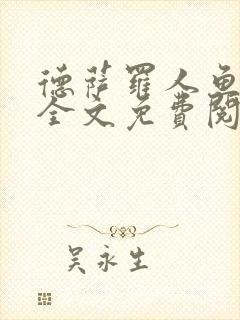 德萨罗人鱼
全文免费阅
吴永生